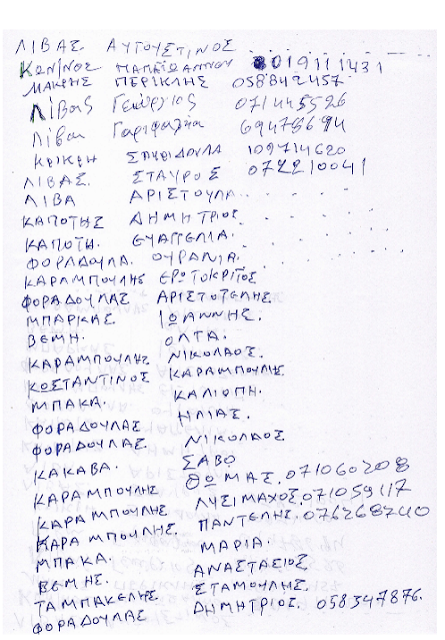 ΛΙΒΑΣ ΑΥΓΟΥΣΤΙΝΟΣ
ΚΩΝ/ΝΟΣ ΠΑΠΑΪΩΑΝΝΟΥ 019111431
ΜΑΚΡΗΣ ΠΕΡΙΚΛΗΣ 058842457.
Λίβας Γεώργιος 071445526
Λίβα Γαριφαλιά
ΚΡΙΚΡΗ ΣΠΥΡΙΔΟΥΛΑ 109714620
ΛΙΒΑΣ. ΣΤΑΥΡΟΣ 072210041
ΛΙΒΑ ΑΡΙΣΤΟΥΛΑ..
ΚΑΠΟΤΗΣ ΔΗΜΗΤΡΙΟΣ.
ΚΑΠΟΤΗ. ΕΥΑΓΓΕΛΙΑ.
ΦΟΡΑΔΟΥΛΑ. ΟΥΡΑΝΙΑ.
ΚΑΡΑΜΠΟΥΛΗΣ ΕΡΩΤΟΚΡΙΤΟΣ
ΦΟΡΑΔΟΥΛΑΣ ΑΡΙΣΤΟΤΕΛΗΣ.
ΜΠΑΡΚΑΣ. ΙΩΑΝΝΗΣ.
ΒΕΜΗ. ΟΛΓΑ.
ΚΑΡΑΜΠΟΥΛΗΣ ΝΙΚΟΛΑΟΣ.
ΚΩΣΤΑΝΤΙΝΟΣ ΚΑΡΑΜΠΟΥΛΗΣ
ΜΠΑΚΑ. ΚΑΛΙΟΠΗ.
ΦΟΡΑΔΟΥΛΑΣ ΗΛΙΑΣ.
ΦΟΡΑΔΟΥΛΑΣ. ΝΙΚΟΛΑΟΣ
ΚΑΚΑΒΑ. ΣΑΒΩ
ΚΑΡΑΜΠΟΥΛΗΣ ΘΩΜΑΣ. 071060208
ΚΑΡΑΜΠΟΥΛΗΣ ΛΥΣΙΜΑΧΟΣ. 071059117
ΚΑΡΑΜΠΟΥΛΗΣ. ΠΑΝΤΕΛΗΣ. 076268240
ΜΠΑΚΑ. ΜΑΡΙΑ.
ΒΕΜΗΣ. ΑΝΑΣΤΑΣΙΟΣ
ΤΑΜΠΑΚΕΛΗΣ ΣΤΑΜΟΥΛΗΣ.
ΦΟΡΑΔΟΥΛΑΣ ΔΗΜΗΤΡΙΟΣ. 058347876.